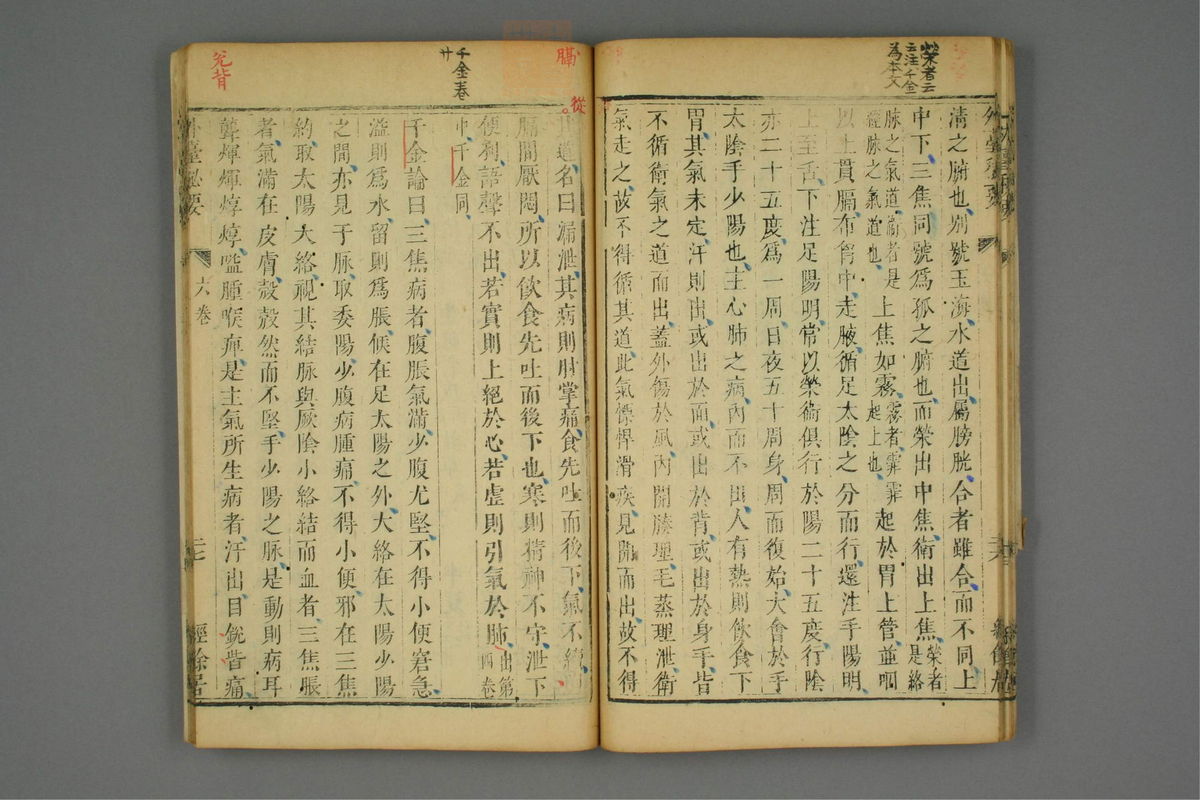 榮者云
云注千金
為本文
清之腑也別號玉海水道出屬膀胱合者雖合而不同上
中下三焦同號爲孤之腑也而榮出中焦衛出上焦榮者是絡
脉之氣道衛者是經脉之氣道也上焦如霧霧者霏霏起上也起於胃上管並咽
以上貫膈布胷中走腋循足太陰之分而行還注手陽明
上至舌下注足陽明常以榮衛俱行於陽二十五度行陰
亦二十五度爲一周日夜五十周身周而復始大會於手
太陰手少陽也主心肺之病內而不出人有熱則飲食下
胃其氣未定汗則出或出於面或出於背或出於身手皆
不循衛氣之道而出蓋外傷於風內開腠理毛蒸理泄衛
氣走之故不得循其道此氣慓悍滑疾見開而出故不得
膈
從
千金卷
廿
其道名曰漏泄其病則肘掌痛食先吐而後下氣不續
膈間厭悶所以飲食先吐而後下也寒則精神不守泄下
便利語聲不出若實則上絕於心若虛則引氣於肺出第四卷
中千金同
千金論曰三焦病者腹脹氣滿少腹尤堅不得小便窘急
溢則爲水留則爲脹候在足太陽之外大絡在太陽少陽
之間亦見于脉取委陽少腹病腫痛不得小便邪在三焦
約取太陽大絡視其結脉與厥陰小絡結而血者三焦脹
者氣滿在皮膚殼殼然而不堅手少陽之脉是動則病耳
聾煇煇焞焞嗌腫喉痺是主氣所生病者汗出目銳眥痛
外臺秘要
六卷
三七
經餘居